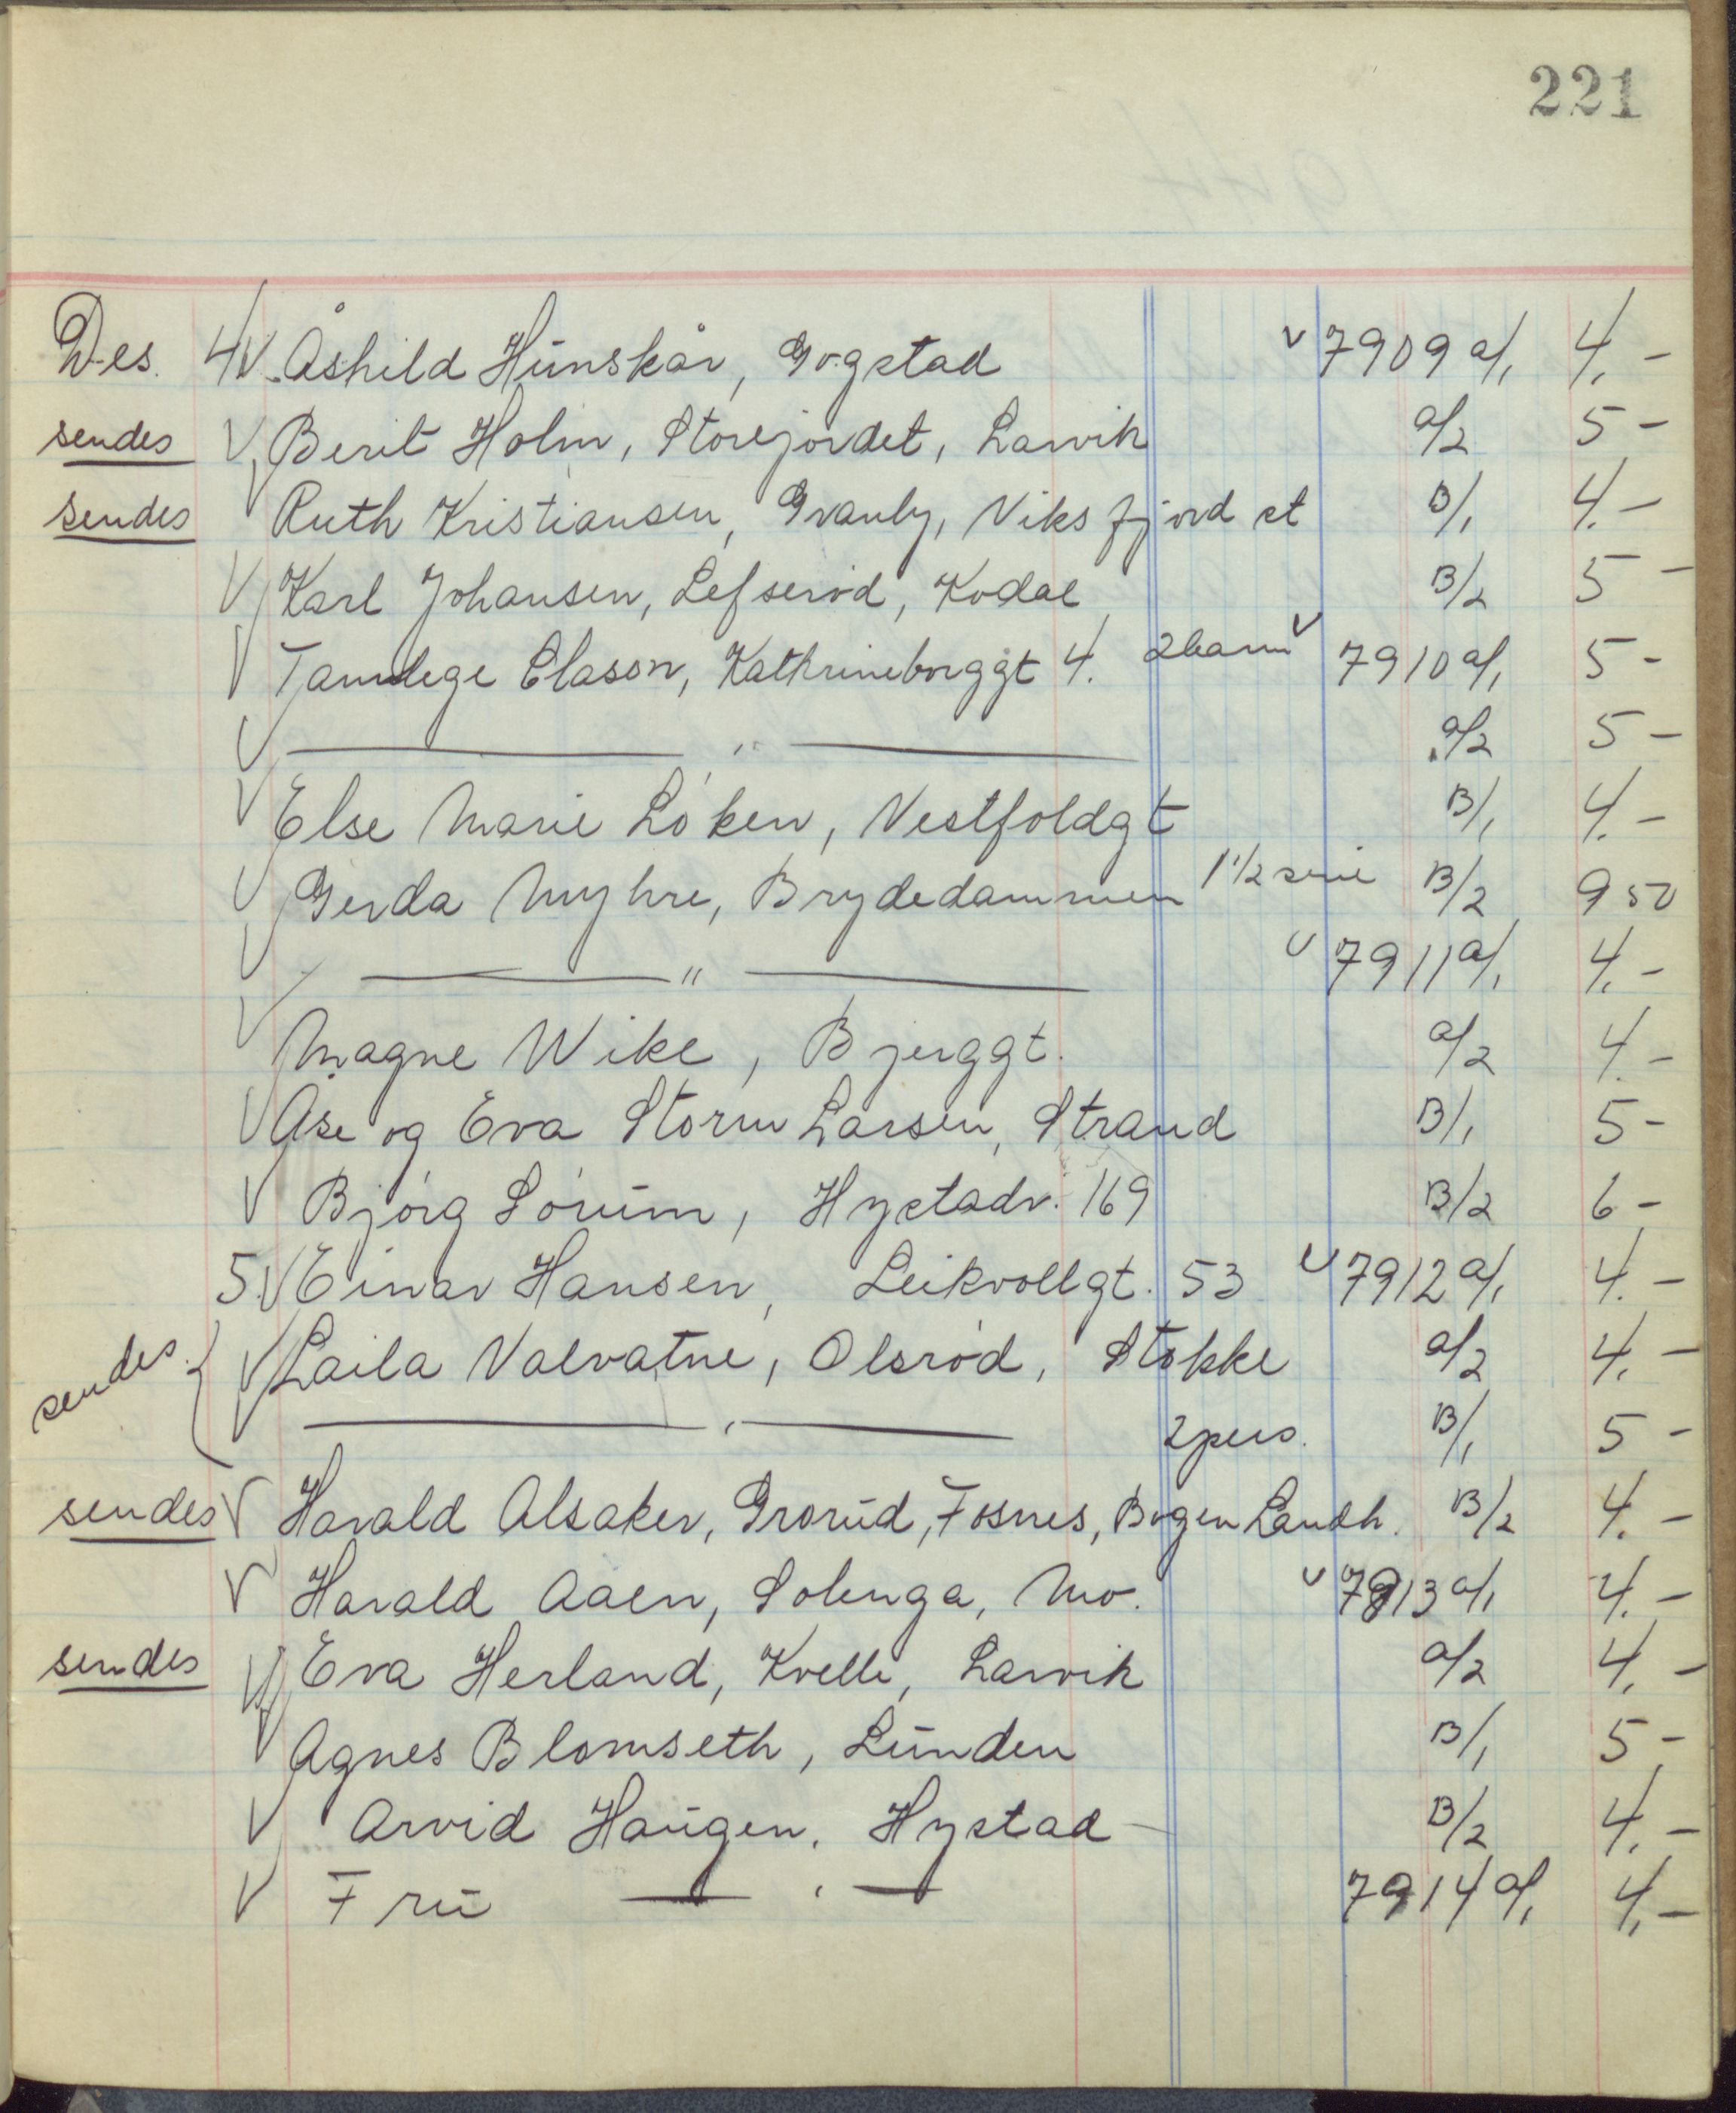 221
Des. 4 V. Åshild Hunskår, Gogstad v 7909 a/1 4.-
sendes V Berit Holm, Storejordet, Larvik a/2 5 -
sendes V Ruth Kristiansen, Granby, Viksfjord st B/1 4.-
V Karl Johansen, Lefserød, Kodal B/2 5 -
V Tannlege Clason, Kathrineborggt 4. 2 barn v 7910 a/1 5 -
V —— " —— a/2 5 -
V Else Marie Løken, Vestfoldgt B/1 4.-
V Gerda Myhre, Brydedammen 1 1/2 serie B/2 9 50
V —— " —— v 7911 a/1 4.-
V Magne Wike, Bjerggt. a/2 4.-
V Åse og Eva Storm Larsen, Strand B/1 5 -
V Bjørg Sørum, Hystadv. 169 B/2 6 -
5. V Einar Hansen, Leikvollgt. 53 v 7912 a/1 4.-
sendes. { V Laila Valvatne, Olsrød, Stokke a/2 4.-
V —— " —— 2 pers. B/1 5 -
sendes V Harald Alsaker, Grorud, Fosnes, Bogen Landh. B/2 4.-
V Harald Aaen, Solenga, Mo. v 7913 a/1 4.-
sendes V Eva Herland, Kvelle, Larvik a/2 4.-
V Agnes Blomseth, Lunden B/1 5 -
V Arvid Haugen, Hystad B/2 4.-
V Fru —— " —— 7914 a/1 4.-